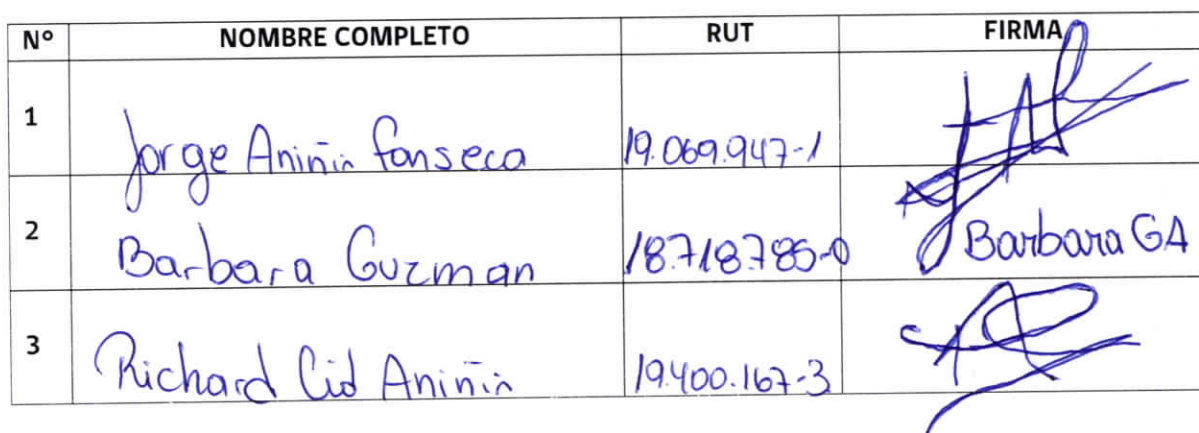 N° NOMBRE COMPLETO RUT FIRMA
1 Jorge Aniñir Fonseca 19.069.947-1
2 Barbara Guzman 18.718.785-0 Barbara GA
3 Richard Cid Aniñir 19.400.167-3